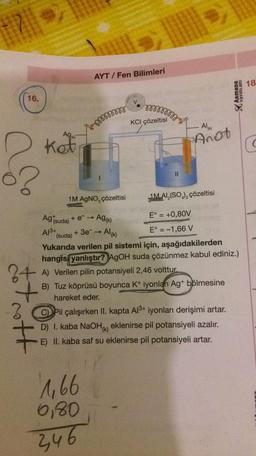 AYT / Fen Bilimleri
16.
V
KCl çözeltisi
Ag
Al(k)
Kat
Anot
I
II
1M AgNO₃ çözeltisi
1M Al₂(SO₄)₃ çözeltisi
Ag⁺(suda) + e⁻ → Ag(k) E° = +0,80V
Al³⁺(suda) + 3e⁻ → Al(k) E° = –1,66 V
Yukarıda verilen pil sistemi için, aşağıdakilerden
hangisi yanlıştır? (AgOH suda çözünmez kabul ediniz.)
A) Verilen pilin potansiyeli 2,46 volttur.
B) Tuz köprüsü boyunca K⁺ iyonları Ag⁺ bölmesine
hareket eder.
C) Pil çalışırken II. kapta Al³⁺ iyonları derişimi artar.
D) I. kaba NaOH(k) eklenirse pil potansiyeli azalır.
E) II. kaba saf su eklenirse pil potansiyeli artar.
1,66
0,80
2,46
18